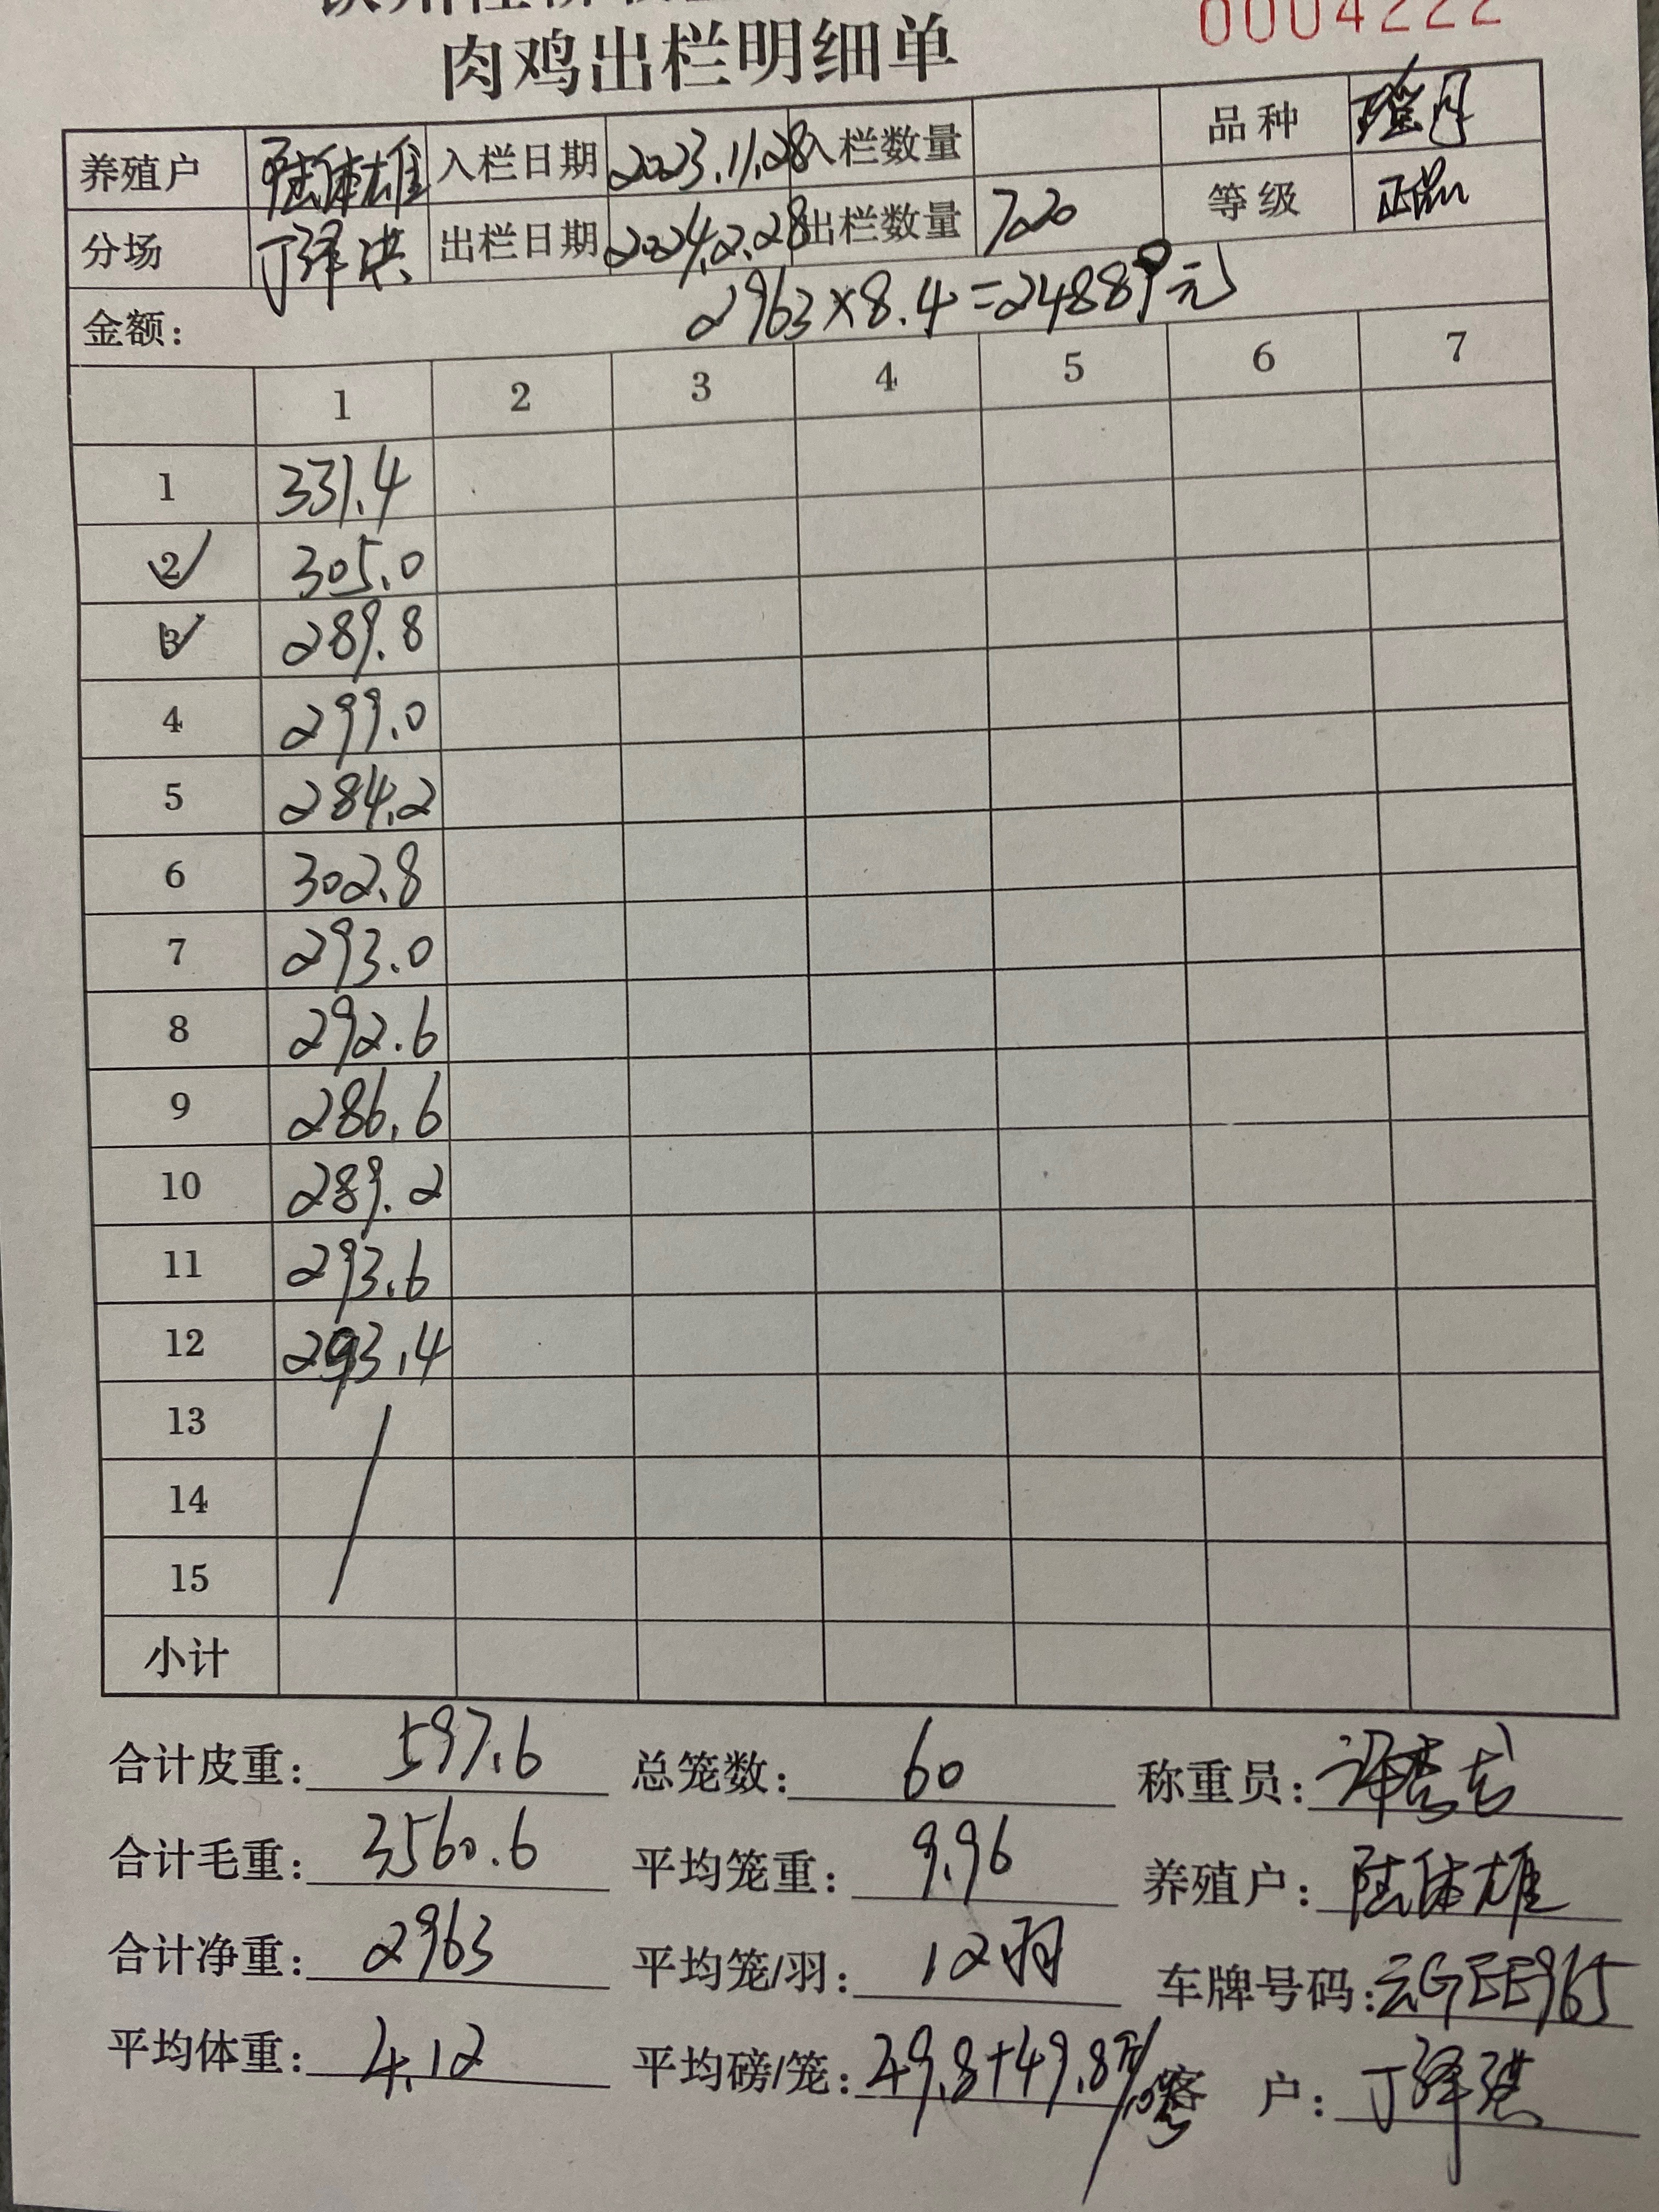 0004222
肉鸡出栏明细单
养殖户 陆体雄 入栏日期 2023.11.28 入栏数量 品种
分场 丁泽洪 出栏日期 2024.2.28 出栏数量 720 等级 正品
金额: 2963×8.4=24889元
1 2 3 4 5 6 7
1 331.4
2 305.0
3 289.8
4 299.0
5 284.2
6 302.8
7 293.0
8 292.6
9 286.6
10 289.2
11 293.6
12 293.4
13
14
15
小计
合计皮重: 597.6 总笼数: 60 称重员:
合计毛重: 3560.6 平均笼重: 9.96 养殖户: 陆体雄
合计净重: 2963 平均笼/羽: 12羽 车牌号码: 云GEE965
平均体重: 4.12 平均磅/笼: 49.8+49.8 客 户: 丁泽洪